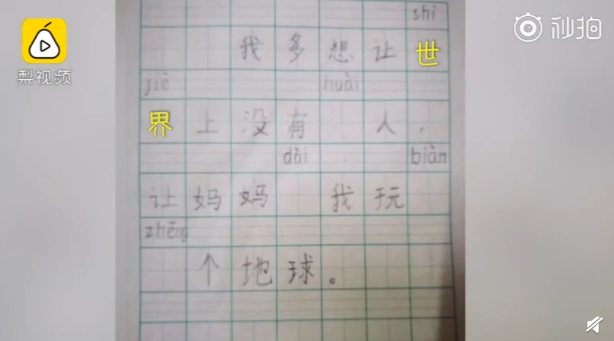 梨视频
秒拍
shì
我多想让世
jiè huài
界上没有 人，
dài biàn
让妈妈 我玩
zhěng
个地球。